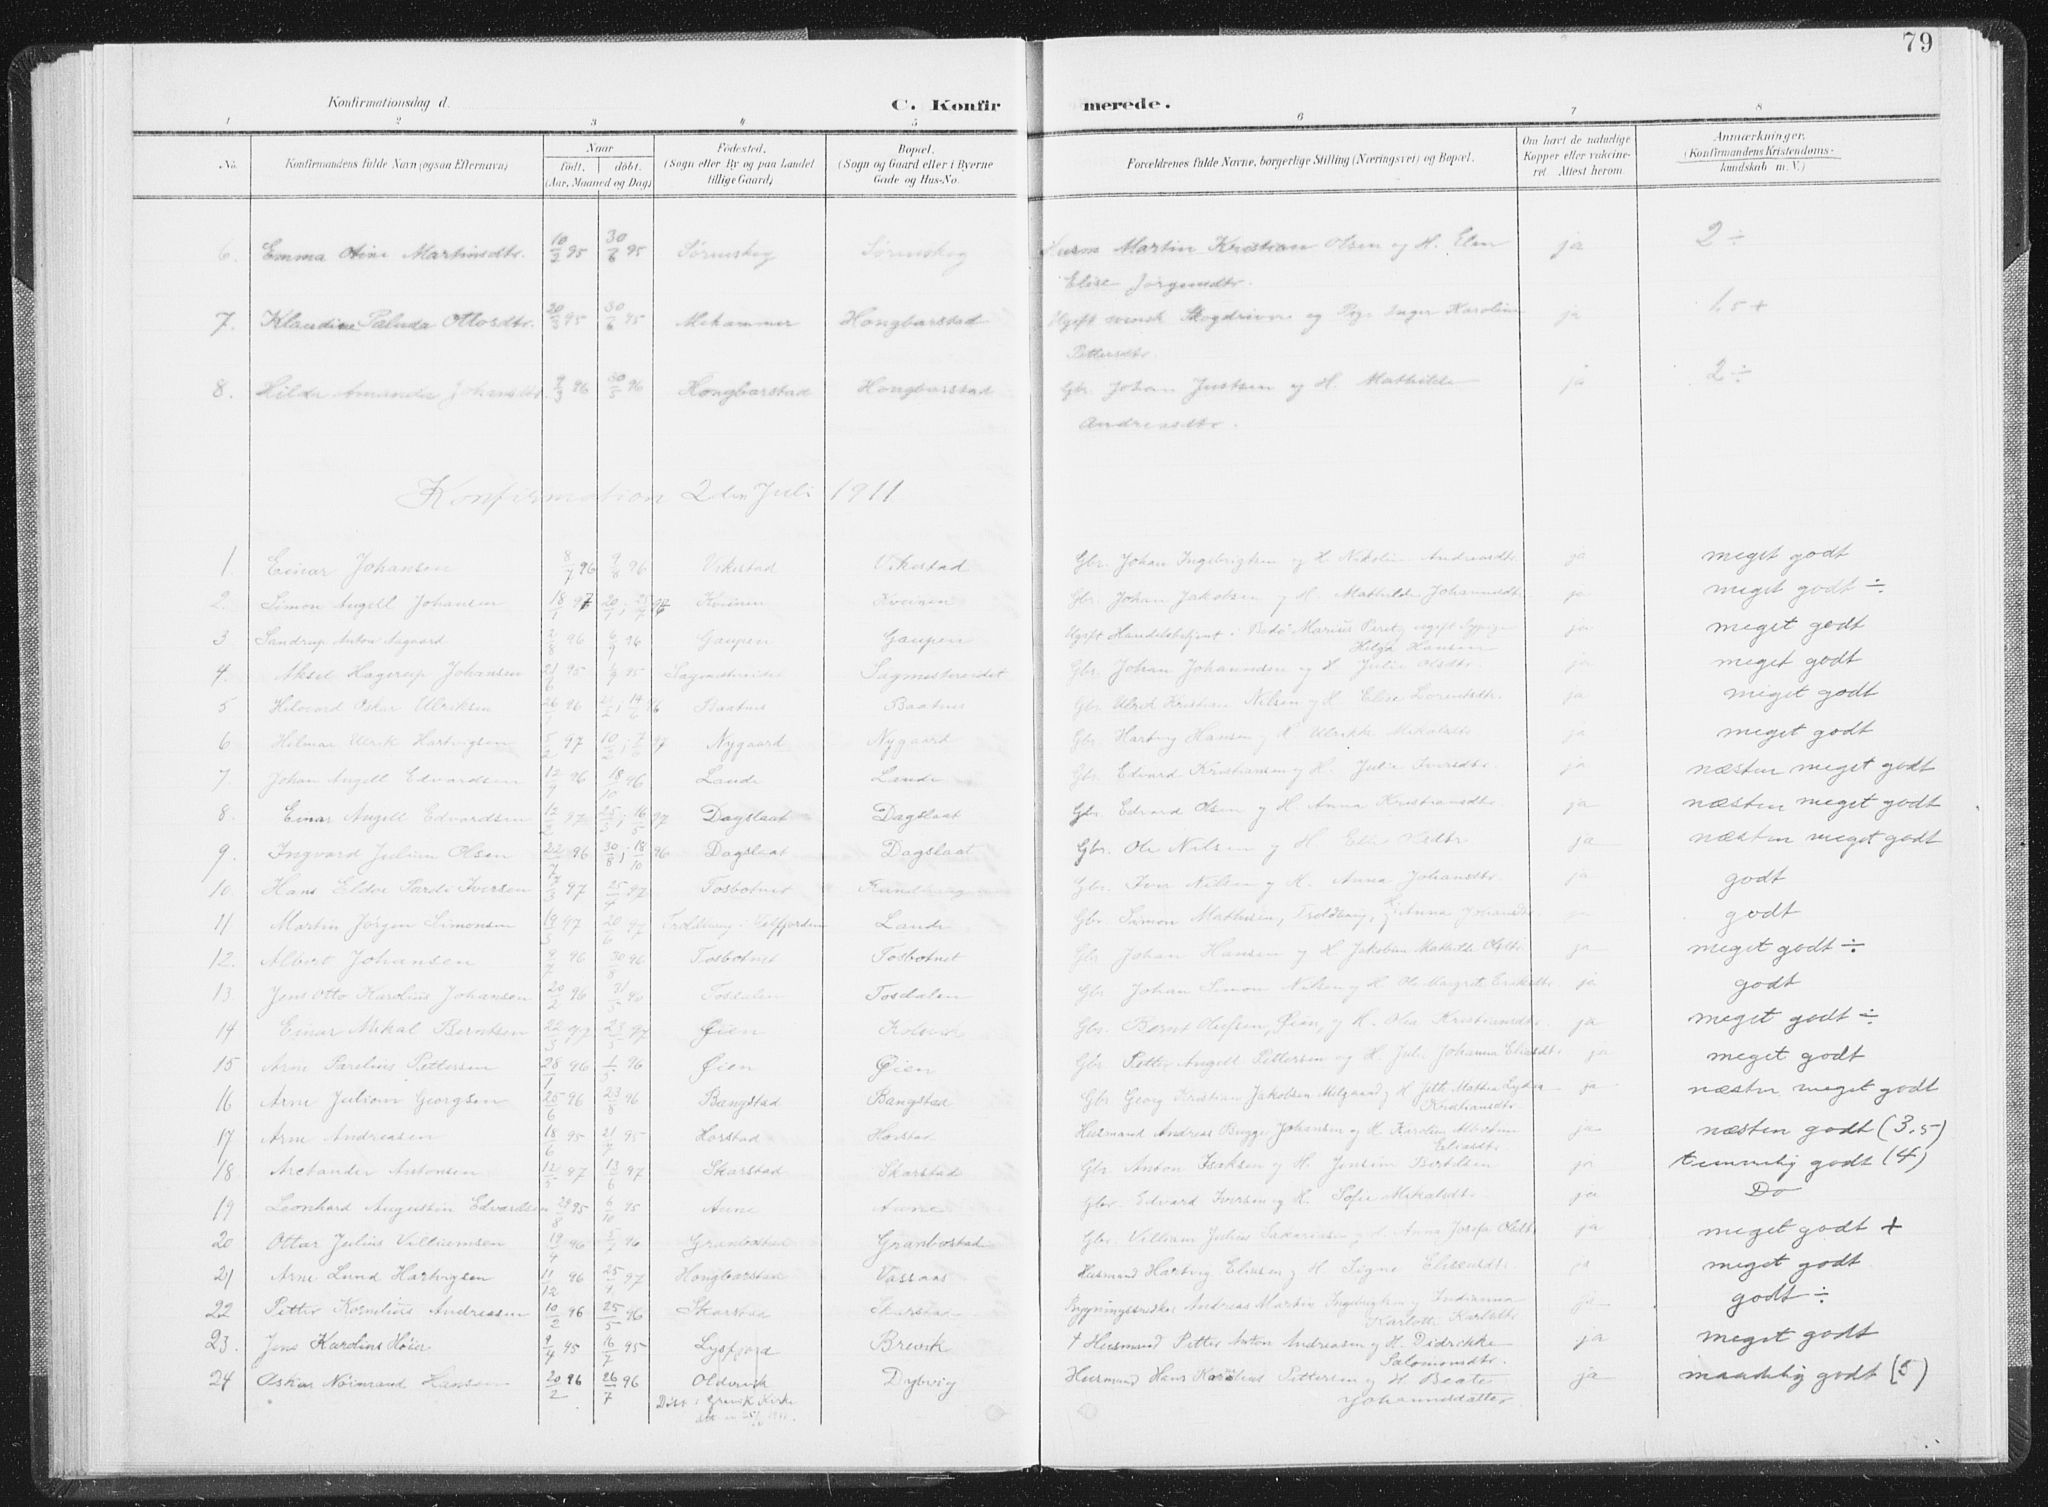 79
Konfirmationsdag d.
C. Konfirmerede.
1 2 3 4 5 6 7 8
No. Konfirmandens fulde Navn (ogsaa Efternavn) Naar født, døbt. (Aar, Maaned og Dag) Fødested, (Sogn eller By og paa Landet tillige Gaard) Bopæl. (Sogn og Gaard eller i Byerne Gade og Hus-No. Forældrenes fulde Navne, borgerlige Stilling (Næringsvei) og Bopæl. Om havt de naturlige Kopper eller vakcineret. Attest herom. Anmærkninger. (Konfirmandens Kristendomskundskab m. V.)
6. Emma Martinsdtr. 10/2 95 30/6 95 Sørenskog Sørenskog Husm Martin Kristian Olsen og H. Elen ja 2 ÷
Elise Jørgensdtr.
7. Klaudine Paluda Ottosdtr. 20/3 95 30/6 95 Mehammer Hongbarstad Ugift svensk Skogdriver og Pige Inger Karoline ja 1,5 +
Pettersdtr.
8. Hilda Amanda Johansdtr. 9/3 96 30/5 96 Hongbarstad Hongbarstad Gbr. Johan Justsen og H. Mathilde ja 2 ÷
Andreasdtr.
Konfirmation 2den Juli 1911
1. Einar Johansen 8/7 96 9/8 96 Vikestad Vikestad Gbr. Johan Ingebrigtsen og H. Nikoline Andreasdtr. ja meget godt
2. Simon Angell Johansen 18/1 97 Kveinen Kveinen Gbr. Johan Jakobsen og H. Mathilde Johannesdtr. ja meget godt ÷
3 Sandrup Anton Aagaard 2/8 96 6/9 96 Gaupen Gaupen Ugift Handelsbetjent i Bodø Marius Peretz ugift ja meget godt
Helga Hansen
4. Aksel Hagerup Johansen 21/6 95 1/9 95 Sagmestereidet Sagmestereidet Gbr. Johan Johannesen og H. Julie Olsdtr. ja meget godt
5 Helvard Oskar Ulriksen 26/1 96 Baatnes Baatnes Gbr. Ulrik Kristian Nilsen og H. Elise Lorentsdtr. ja meget godt
6 Hilmar Ulrik Hartvigsen 5/2 97 Nygaard Nygaard Gbr. Hartvig Hansen og H. Ulrikke Mikalsdtr. ja meget godt
7. Johan Angell Edvardsen 12/9 96 18/10 96 Lande Lande Gbr. Edvard Kristiansen og H. Julie Iversdtr. ja næsten meget godt
8. Einar Angell Edvardsen 12/2 97 25/3; 16/5 97 Dagslaat Dagslaat Gbr. Edvard Olsen og H. Anna Kristiansdtr. ja næsten meget godt
9. Ingvard Julius Olsen 22/7 96 30/8; 18/10 96 Dagslaat Dagslaat Gbr. Ole Nilsen og H. ja næsten meget godt
10. Hans Eldor Pardi Iversen 7/3 97 25/4 97 Tosbotnet Gbr. Iver Nilsen og H. Anna Johansdtr. ja godt
11 Martin Jørgen Simonsen 19/3 97 20/6 97 Lande Gbr. Simon Mathisen, Troldvaag, Anna Johansdtr. ja godt
12. Albert Johansen 9/7 96 30/8 96 Tosbotnet Tosbotnet Gbr Johan Hansen og H. Jakobine Mathilde Olsdtr. ja meget godt ÷
13. Jens Otto Karolius Johansen 20/2 96 31/5 96 Tosdalen Tosdalen Gbr. Johan Simon Nilsen og H. Ole Margret Eriksdtr. ja godt
14 Einar Mikal Berntsen 22/3 97 23/5 97 Øien Kolsvik Gbr. Bernt Olufsen, Øien, og H. Olea Kristiansdtr. ja meget godt ÷
15 Arne Parelius Pettersen 28/1 96 1/5 96 Øien Øien Gbr. Petter Angell Pettersen og H. Julie Johanna Eliasdtr. ja meget godt
16 Arne Julian Georgsen 25/6 96 23/8 96 Bangstad Bangstad Gbr. Georg Kristian Jakobsen og H. Jette Mathea ja næsten meget godt
Kristiansdtr.
17 Arne Andreasen 18/6 95 21/7 95 Horstad Horstad Husmand Andreas Brygge Johansen og H Karoline Albertine ja næsten godt (3.5)
Eliasdtr.
18 Arctander Antonsen 12/5 97 13/6 97 Skarstad Skarstad Gbr. Anton Isaksen og H. Jensine Bertelsen ja temmelig godt (4)
19 Leonhard Augustin Edvardsen 29/8 95 6/10 95 Aune Aune Gbr. Edvard Iversen og H. Sofie Mikalsdtr. ja Do
20 Ottar Julius Villiumsen 19/4 96 5/7 96 Granbostad Granbostad Gbr. Villiam Julius Sakariasen og H. Anna Josefa Olsdtr. ja meget godt +
21 Arne Lund Hartvigsen 11/12 96 25/4 97 Hongbarstad Vassaas Husmand Hartvig Eliasen og H Signe Eliasdtr. ja meget godt
22 Petter Kornelius Andreasen 10/2 96 25/5 96 Skarstad Skarstad Andreas Martin Ingebrigtsen og Indianna ja godt ÷
Karlotte Karlsdtr.
23. Jens Karolius Høier 9/4 95 16/7 95 Lysfjord Brevik † Husmand Petter Anton Andreasen og H. Didrikke ja meget godt
Salomonsdtr.
24 Oskar Normand Hansen 20/2 96 26/7 96 Oldervik Dybvig Husmand Hans Karolius Pettersen og H Beate ja maadelig godt (5)
Kirke Johannesdatter